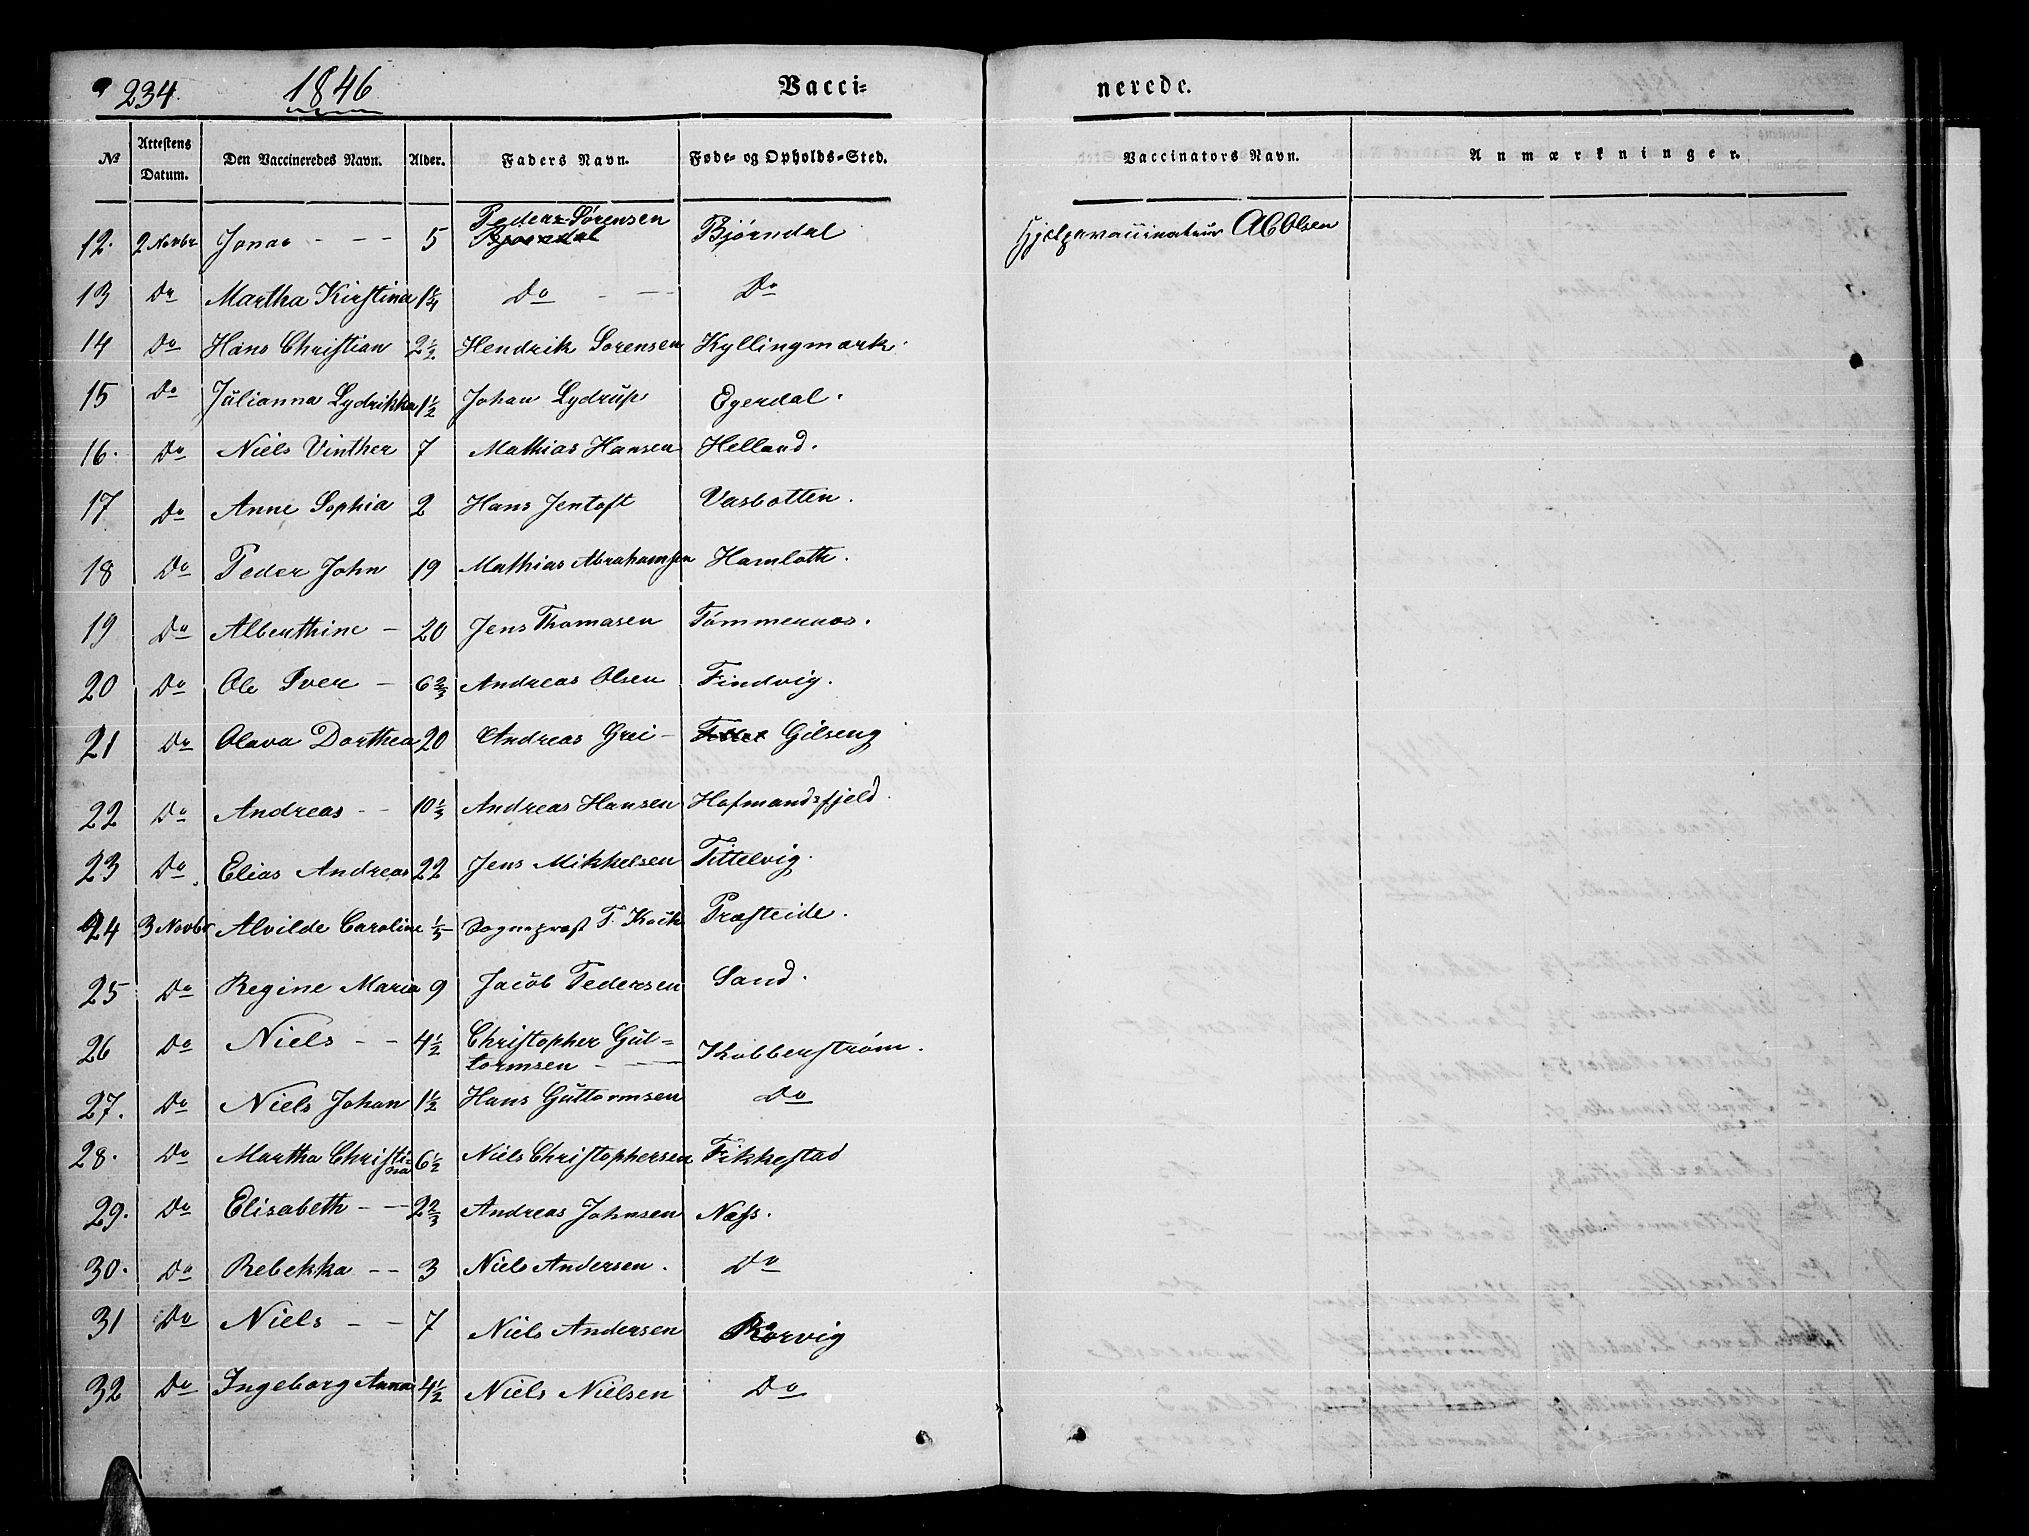 234. 1846 Vacci= nerede.
No Attestens Datum. Den Vaccineredes Navn. Alder. Faders Navn. Føde- og Opholds-Sted. Vaccinators Navn. Anmærkninger.
12. 2 Novbr Jonas - - - 5 Peder Sørensen Bjørndal Bjørndal Hjelpevaccinateur Olsen
13 Do Martha Kirstina 1 1/4 Do - - Do
14 Do Hans Christian 2 1/2 Hendrik Sorensen Kyllingmark.
15 Do Julianna Lydrikka 1 1/2 Johan Lydrup Egerdal.
16. Do Niels Vinther 7 Mathias Hansen Helland.
17 Do Anne Sophia 2 Hans Jentoft Vasbotten.
18 Do Peder John 19 Mathias Abrahamsen Hamloth.
19 Do Alberthine - 20 Jens Thomasen Tømmernæs.
20 Do Ole Iver - 6 2/3 Andreas Olsen Findvig.
21 Do Olava Dorthea 20 Andreas Grei - Gilseng
22 Do Andreas - - 10 1/3 Andreas Hansen Hofmandsfjeld.
23 Do Elias Andreas 22 Jens Mikkelsen Tittelvig.
24 3 Novbr Alvilde Caroline 1/5 Sognepræst T. Kock Præsteide.
25 Do Regine Maria 9 Jacob Pedersen Sand.
26 Do Niels - - 4 1/2 Christopher Gut=
tormsen - - Kobberstrøm.
27. Do Niels Johan 1 1/2 Hans Guttormsen Do
28. Do Martha Christi-
na 6 1/2 Niels Christophersen Fikkestad
29. Do Elisabeth - - 2 2/3 Andreas Johnsen Næss.
30. Do Rebekka - - 3 Niels Andersen. Do
31 Do Niels - - 7 Niels Andersen Rørvig
32 Do Ingeborg Anna 4 1/2 Niels Nielsen Do